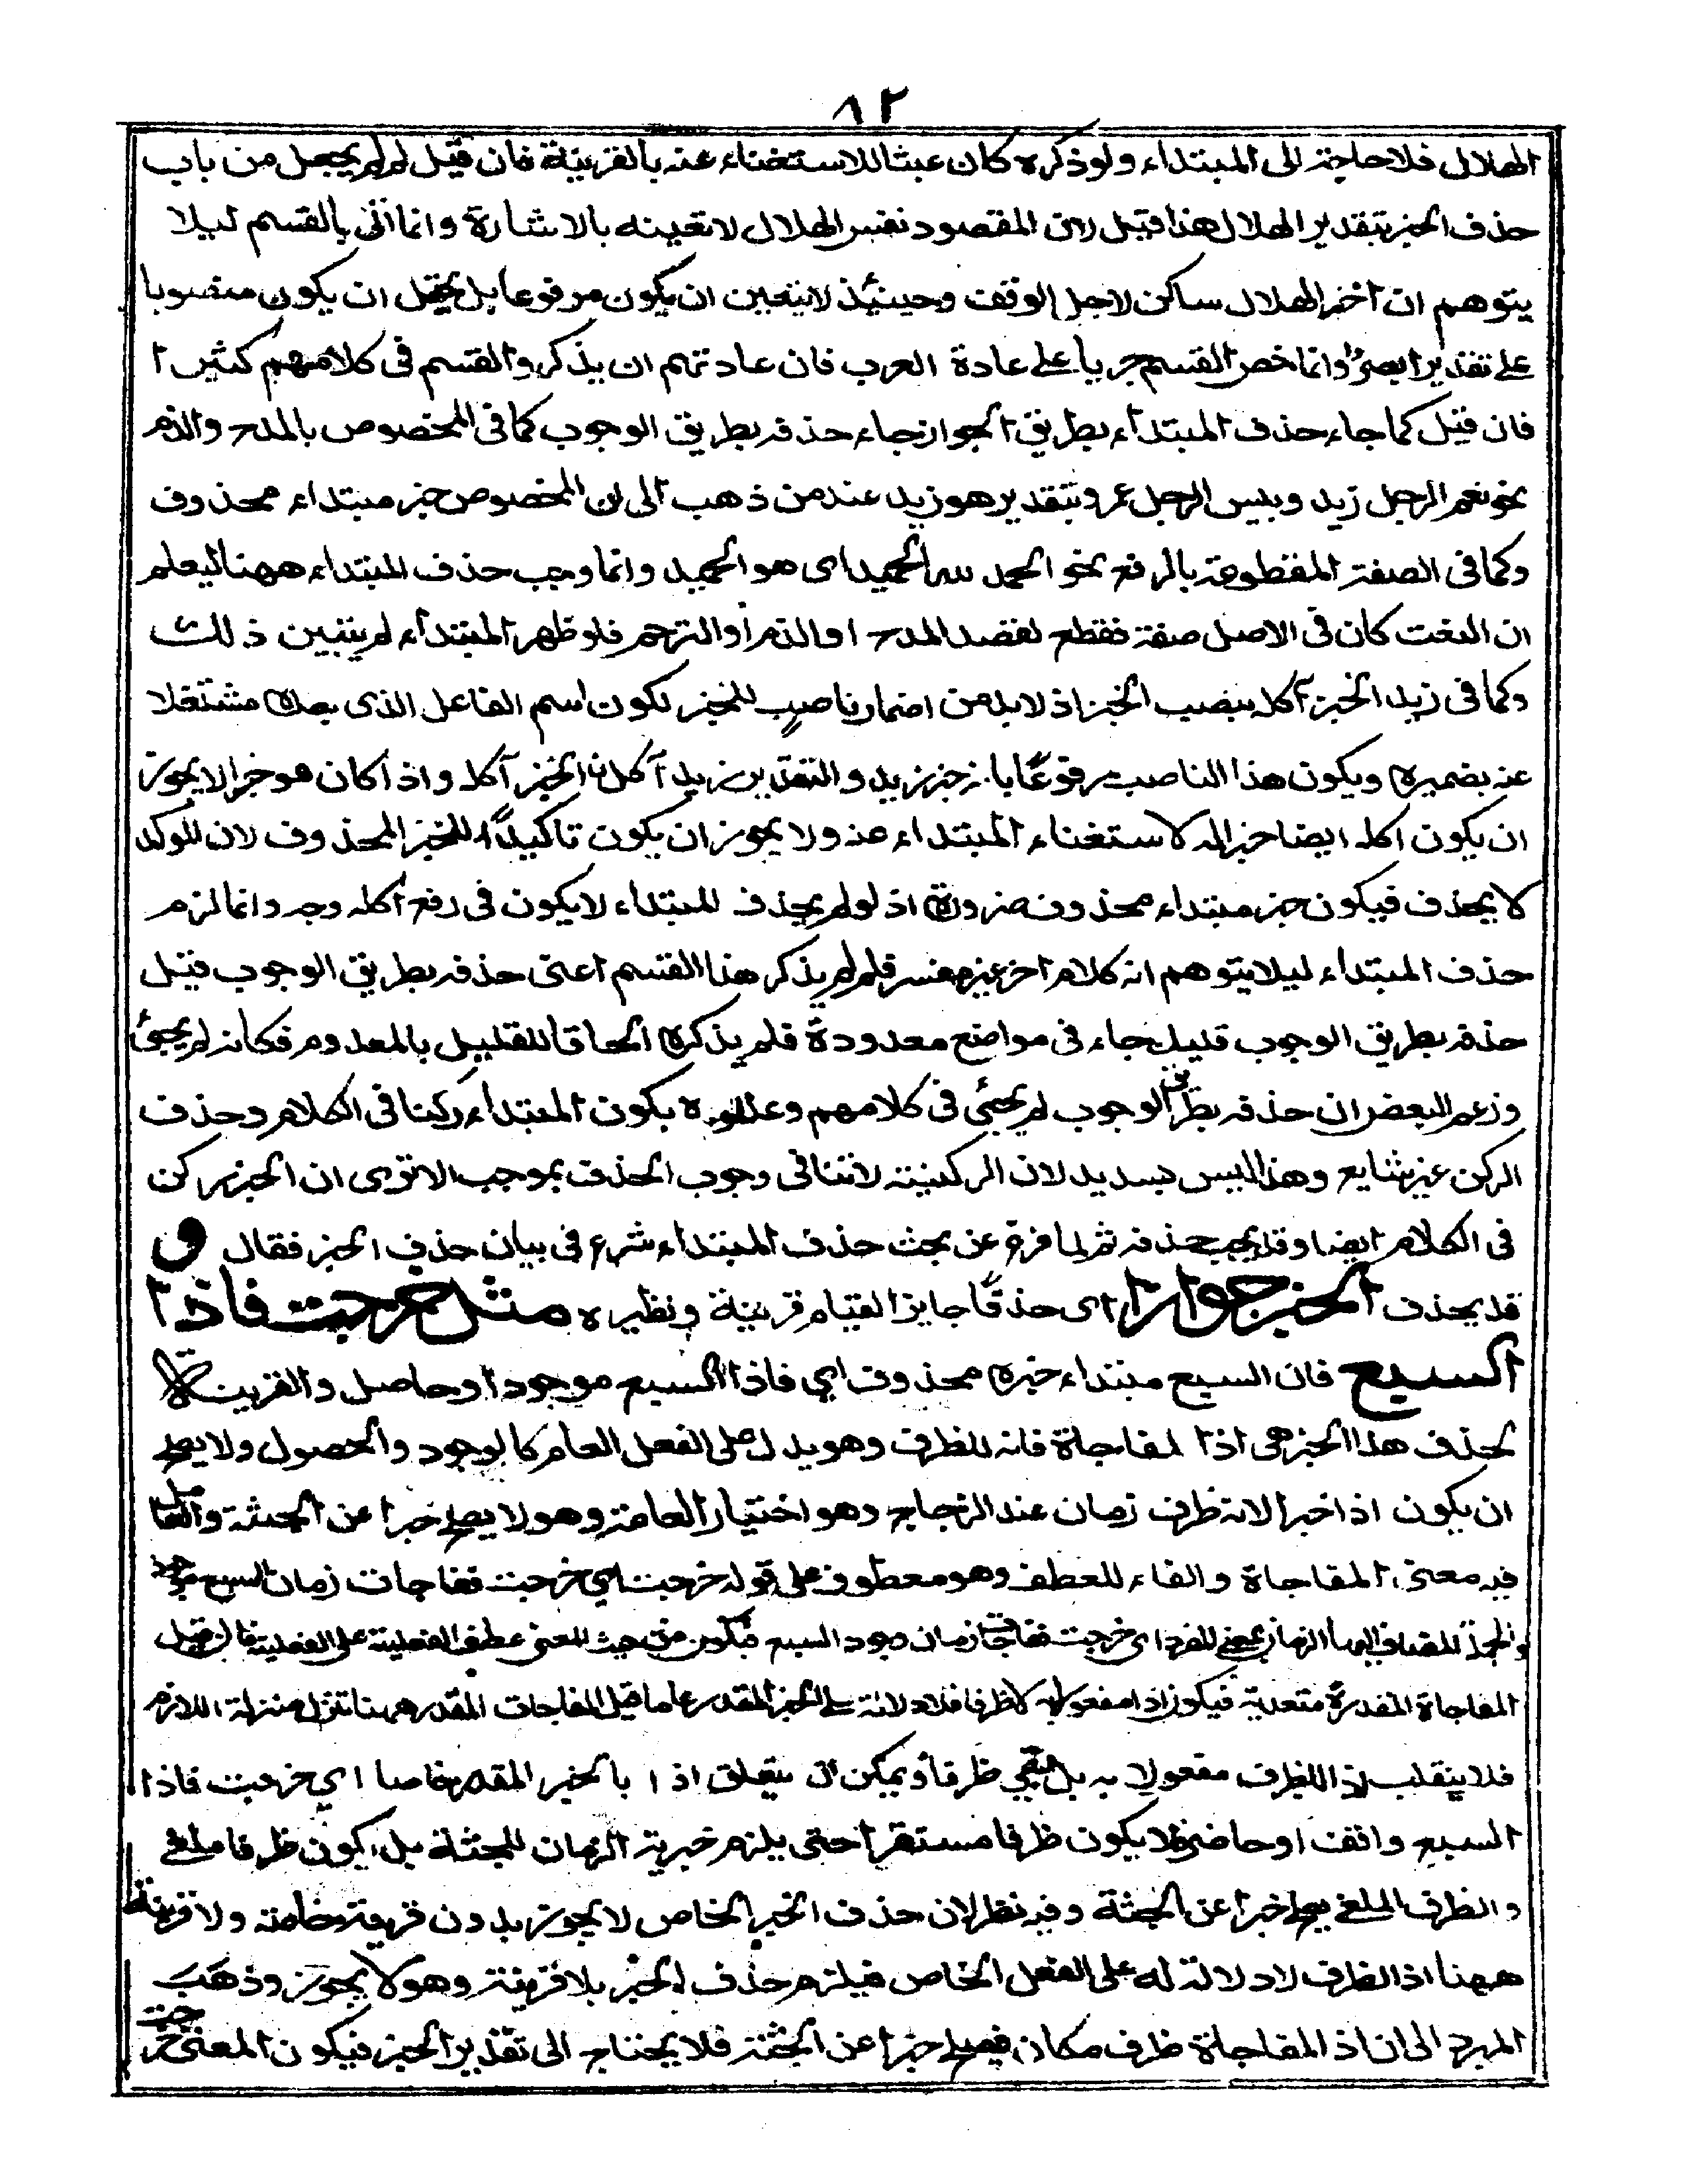 ٨٢
الهلال فلا حاجة الى المبتداء ولو ذكره كان عبثا للاستغناء عنه بالقرينة فان قيل لم لم يجعل من باب
حذف الخبر بتقدير الهلال هذا قيل لان المقصود نفس الهلال لا تعيينه بالاشارة وانما اتى بالقسم ليلا
يتوهم ان اخر الهلال ساكن لاجل الوقف وحينئذ لا يتعين ان يكون مرفوعا بل يحتمل ان يكون منصوبا
على تقدير ابصروا وانما خص القسم جريا على عادة العرب فان عادتهم ان يذكروا القسم فى كلامهم كثيرا
فان قيل كما جاء حذف المبتداء بطريق الجواز جاء حذفه بطريق الوجوب كما فى المخصوص بالمدح والذم
نحو نعم الرجل زيد وبيس الرجل عمرو بتقدير هو زيد عند من ذهب الى ان المخصوص خبر مبتداء محذوف
وكما فى الصفة المقطوعة بالرفع نحو الحمد لله الحميد اى هو الحميد وانما وجب حذف المبتداء ههنا ليعلم
ان النعت كان فى الاصل صفة فقطع لقصد المدح او الذم او الترحم فلو ظهر المبتداء لم يتبين ذلك
وكما فى زيد الخبز آكله بنصب الخبز اذ لا بد من اضمار ناصب للخبز لكون اسم الفاعل الذى بعده مشتغلا
عنه بضميره ويكون هذا الناصب مرفوعا بانه خبر زيد والتقدير زيد آكل الخبز آكله واذا كان هو خبرا لا يجوز
ان يكون اكله ايضا خبرا له لاستغناء المبتداء عنه ولا يجوز ان يكون تاكيدا للخبز المحذوف لان الموكد
لا يحذف فيكون خبر مبتداء محذوف ضرورة اذ لو لم يحذف المبتداء لا يكون فى رفع آكله وجه وانما لزم
حذف المبتداء ليلا يتوهم انه كلام اخر غير مفسر فلم لم يذكر هذا القسم اعنى حذفه بطريق الوجوب قيل
حذفه بطريق الوجوب قليل جاء فى مواضع معدودة فلم يذكره الحاقا للقليل بالمعدوم فكانه لم يجئ
وزعم البعض ان حذفه بطريق الوجوب لم يجئ فى كلامهم وعللوه بكون المبتداء ركنا فى الكلام وحذف
الركن غير شايع وهذا ليس بسديد لان الركنية لا تنافى وجوب الحذف بموجب الا ترى ان الخبر ركن
فى الكلام ايضا وقد يجب حذفه ثم لما فرغ عن بحث حذف المبتداء شرع فى بيان حذف الخبر فقال و
قد يحذف الخبر جوازا اى حذفا جايزا لقيام قرينة ونظيره مثل خرجت فاذا
السبع فان السبع مبتداء خبره محذوف اى فاذا السبع موجود او حاصل والقرينة
لحذف هذا الخبر هى اذا لمفاجاة فانه للظرف وهو يدل على الفعل العام كالوجود والحصول ولا يصلح
ان يكون اذا خبرا لانه ظرف زمان عند الزجاج وهو اختيار العامة وهو لا يصلح خبرا عن الجثة والعامل
فيه معنى المفاجاة والفاء للعطف وهو معطوف على قوله خرجت اى خرجت ففاجات زمان السبع موجود
والجملة المضاف اليها الزمان بمعنى المفرد اى خرجت ففاجات زمان وجود السبع فيكون من حيث المعنى عطف الفعلية على الفعلية فان قيل
المفاجاة المقدرة متعدية فيكون اذا مفعولا به لا ظرفا فلا دلالة على الخبر المقدر عاما قيل المفاجات المقدر ههنا تنزل منزلة اللازم
فلا ينقلب اذا الظرف مفعولا به بل يبقى ظرفا ويمكن ان يتعلق اذا بالخبر المقدر خاصا اى خرجت فاذا
السبع واقف او حاضر فلا يكون ظرفا مستقرا حتى يلزم خبرية الزمان للجثة بل يكون ظرفا ملغى
والظرف الملغى يصلح خبرا عن الجثة وفيه نظر لان حذف الخبر الخاص لا يجوز بدون قرينة خاصة ولا قرينة
ههنا اذ الظرف لا دلالة له على الفعل الخاص فيلزم حذف الخبر بلا قرينة وهو لا يجوز وذهب
المبرد الى ان اذ المفاجاة ظرف مكان فيصلح خبرا عن الجثة فلا يحتاج الى تقدير الخبر فيكون المعنى خرجت